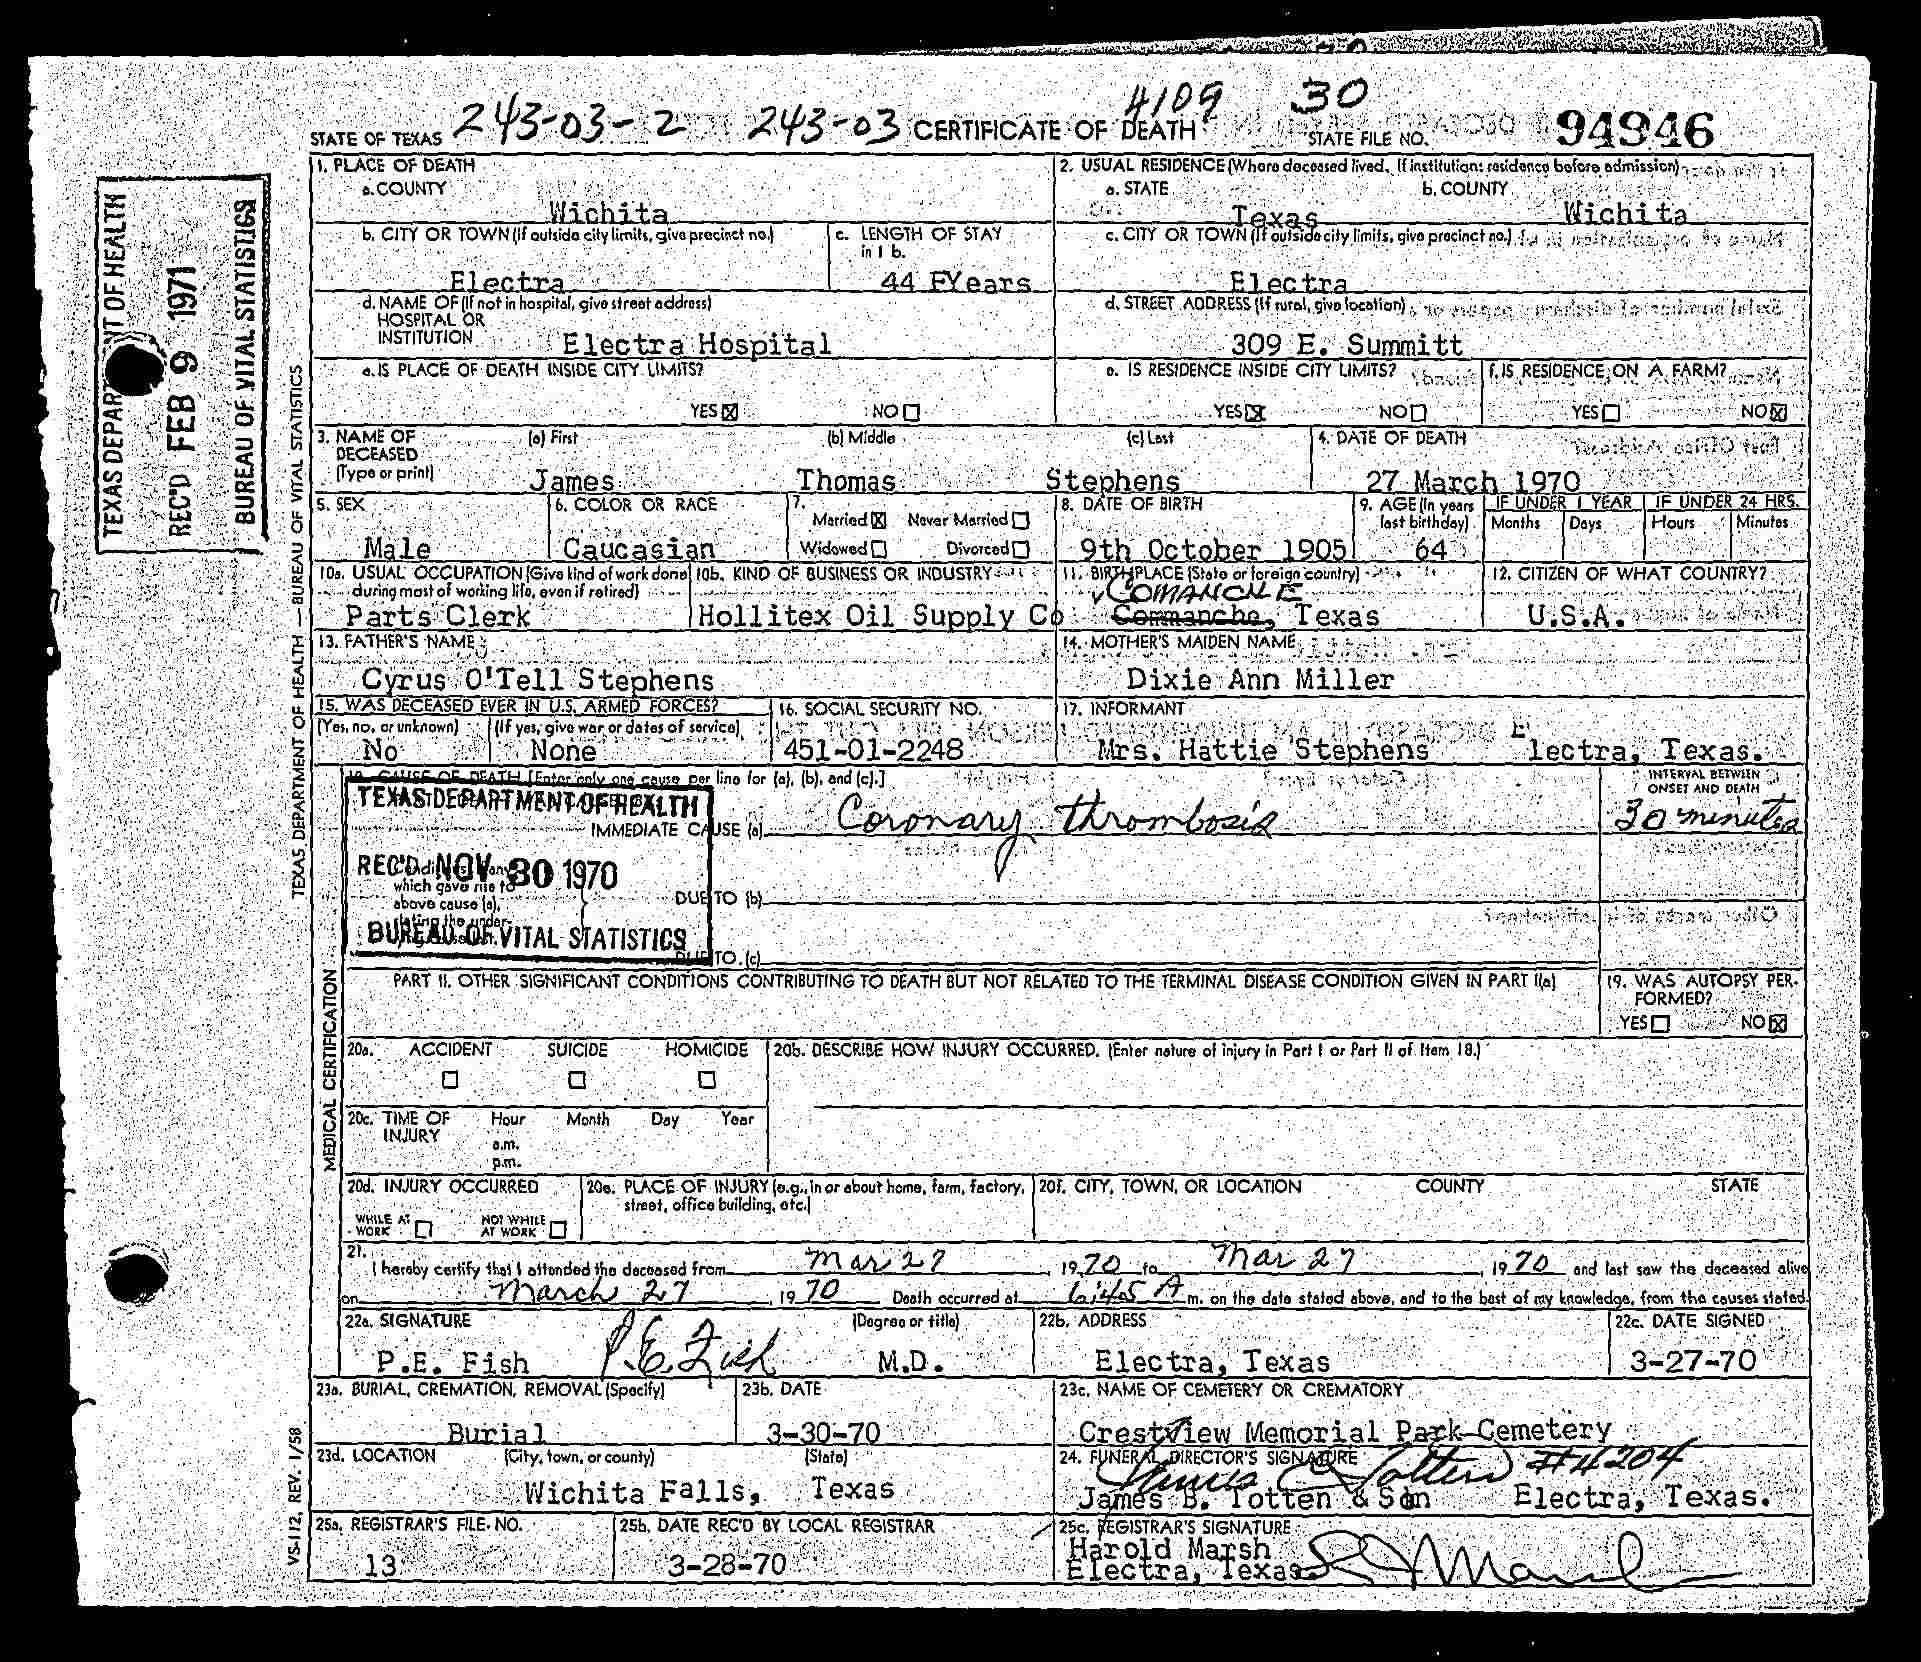 4109 30
STATE OF TEXAS 243-03-2 243-03 CERTIFICATE OF DEATH STATE FILE NO. 94946
TEXAS DEPARTMENT OF HEALTH
REC'D FEB 9 1971
BUREAU OF VITAL STATISTICS
TEXAS DEPARTMENT OF HEALTH — BUREAU OF VITAL STATISTICS
1. PLACE OF DEATH
a. COUNTY
Wichita
2. USUAL RESIDENCE (Where deceased lived. If institution: residence before admission)
a. STATE b. COUNTY
Texas Wichita
b. CITY OR TOWN (If outside city limits, give precinct no.)
Electra
c. LENGTH OF STAY
in 1 b.
44 FYears
c. CITY OR TOWN (If outside city limits, give precinct no.)
Electra
d. NAME OF (If not in hospital, give street address)
HOSPITAL OR
INSTITUTION Electra Hospital
d. STREET ADDRESS (If rural, give location)
309 E. Summitt
e. IS PLACE OF DEATH INSIDE CITY LIMITS?
YES ☒ NO ☐
e. IS RESIDENCE INSIDE CITY LIMITS?
YES ☒ NO ☐
f. IS RESIDENCE ON A FARM?
YES ☐ NO ☒
3. NAME OF
DECEASED
(Type or print)
(a) First (b) Middle (c) Last
James Thomas Stephens
4. DATE OF DEATH
27 March 1970
5. SEX
Male
6. COLOR OR RACE
Caucasian
7.
Married ☒ Never Married ☐
Widowed ☐ Divorced ☐
8. DATE OF BIRTH
9th October 1905
9. AGE (In years
last birthday)
64
IF UNDER 1 YEAR
Months Days
IF UNDER 24 HRS.
Hours Minutes
10a. USUAL OCCUPATION (Give kind of work done
during most of working life, even if retired)
Parts Clerk
10b. KIND OF BUSINESS OR INDUSTRY
Hollitex Oil Supply Co
11. BIRTHPLACE (State or foreign country)
COMANCHE
Commanche, Texas
12. CITIZEN OF WHAT COUNTRY?
U.S.A.
13. FATHER'S NAME
Cyrus O'Tell Stephens
14. MOTHER'S MAIDEN NAME
Dixie Ann Miller
15. WAS DECEASED EVER IN U.S. ARMED FORCES?
(Yes, no, or unknown) (If yes, give war or dates of service)
No None
16. SOCIAL SECURITY NO.
451-01-2248
17. INFORMANT
Mrs. Hattie Stephens Electra, Texas.
MEDICAL CERTIFICATION
18. CAUSE OF DEATH [Enter only one cause per line for (a), (b), and (c).]
INTERVAL BETWEEN
ONSET AND DEATH
TEXAS DEPARTMENT OF HEALTH
REC'D NOV 30 1970
BUREAU OF VITAL STATISTICS
IMMEDIATE CAUSE (a) Coronary thrombosis 30 minutes
which gave rise to
above cause (a),
stating the under-
DUE TO (b)
DUE TO (c)
PART II. OTHER SIGNIFICANT CONDITIONS CONTRIBUTING TO DEATH BUT NOT RELATED TO THE TERMINAL DISEASE CONDITION GIVEN IN PART I(a)
19. WAS AUTOPSY PER-
FORMED?
YES ☐ NO ☒
20a. ACCIDENT SUICIDE HOMICIDE
☐ ☐ ☐
20b. DESCRIBE HOW INJURY OCCURRED. (Enter nature of injury in Part I or Part II of Item 18.)
20c. TIME OF
INJURY
Hour Month Day Year
a.m.
p.m.
20d. INJURY OCCURRED
WHILE AT
WORK ☐
NOT WHILE
AT WORK ☐
20e. PLACE OF INJURY (e.g., in or about home, farm, factory,
street, office building, etc.)
20f. CITY, TOWN, OR LOCATION COUNTY STATE
21.
I hereby certify that I attended the deceased from Mar 27, 1970 to Mar 27, 1970 and last saw the deceased alive
on March 27, 1970 Death occurred at 6:45 A m. on the date stated above, and to the best of my knowledge, from the causes stated.
22a. SIGNATURE (Degree or title)
P.E. Fish P.E. Fish M.D.
22b. ADDRESS
Electra, Texas
22c. DATE SIGNED
3-27-70
23a. BURIAL, CREMATION, REMOVAL (Specify)
Burial
23b. DATE
3-30-70
23c. NAME OF CEMETERY OR CREMATORY
Crestview Memorial Park Cemetery
23d. LOCATION (City, town, or county) (State)
Wichita Falls, Texas
24. FUNERAL DIRECTOR'S SIGNATURE
James Totten #4204
James B. Totten & Son Electra, Texas.
25a. REGISTRAR'S FILE NO.
13
25b. DATE REC'D BY LOCAL REGISTRAR
3-28-70
25c. REGISTRAR'S SIGNATURE
Harold Marsh
Electra, Texas
VS-112, REV. 1/58